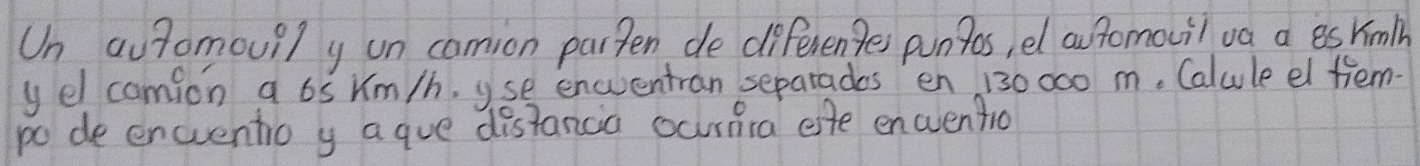 Un automovil y un camion parten de diferentes puntos, el automovil va a 85 Km/h
y el camión a 65 Km/h. y se encuentran separados en 130 000 m. Calcule el tiem-
po de encuentro y a que distancia ocurrira este encuentro